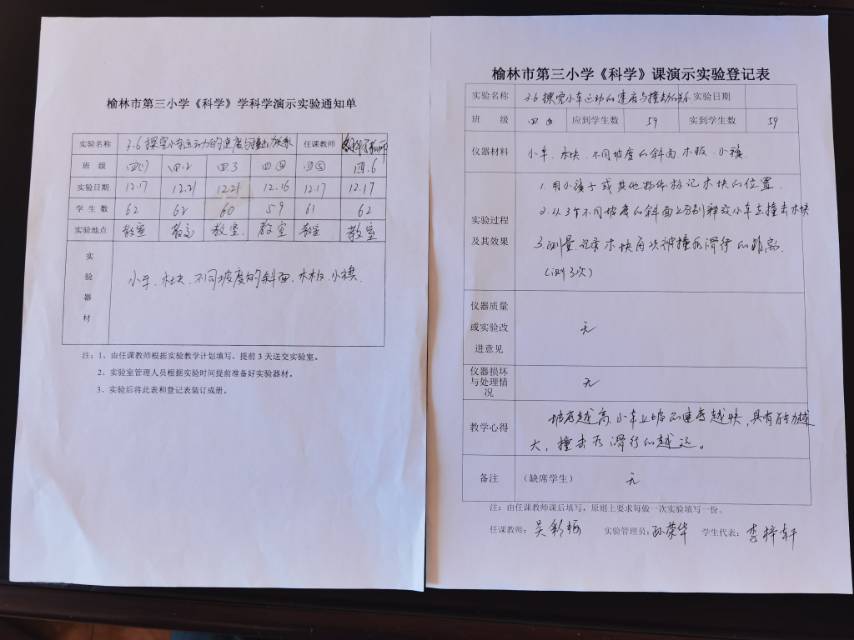 榆林市第三小学《科学》学科学演示实验通知单
实验名称 3.6探究小车运动的速度与撞击 任课教师
班级 四.1 四.2 四3 四四 四五 四.6
实验日期 12.17 12.21 12.21 12.16 12.17 12.17
学生数 62 62 60 59 61 62
实验地点 教室 教室 教室 教室 教室 教室
实验器材 小车、木块、不同坡度的斜面、木板、小旗.
注:1、由任课教师根据实验教学计划填写、提前3天送交实验室。
2、实验室管理人员根据实验时间提前准备好实验器材。
3、实验后将此表和登记表装订成册。
榆林市第三小学《科学》课演示实验登记表
实验名称 3.6探究小车运动的速度与撞击 实验日期
班级 四四 应到学生数 59 实到学生数 59
仪器材料 小车、木块、不同坡度的斜面 木板、小旗
实验过程及其效果
1.用小旗子或其他物体标记木块的位置.
2.从3个不同坡度的斜面上分别释放小车去撞击木块
3.测量、记录木块每次被撞后滑行的距离.
(测3次)
仪器质量或实验改进意见 无
仪器损坏与处理情况 无
教学心得
坡度越高,小车下坡的速度越快,具有能力越
大,撞击后滑行的越远。
备注 (缺席学生) 无
注:由任课教师课后填写,原则上要求每做一次实验填写一份。
任课教师: 吴彩梅 实验管理员: 孙荣华 学生代表: 李梓轩